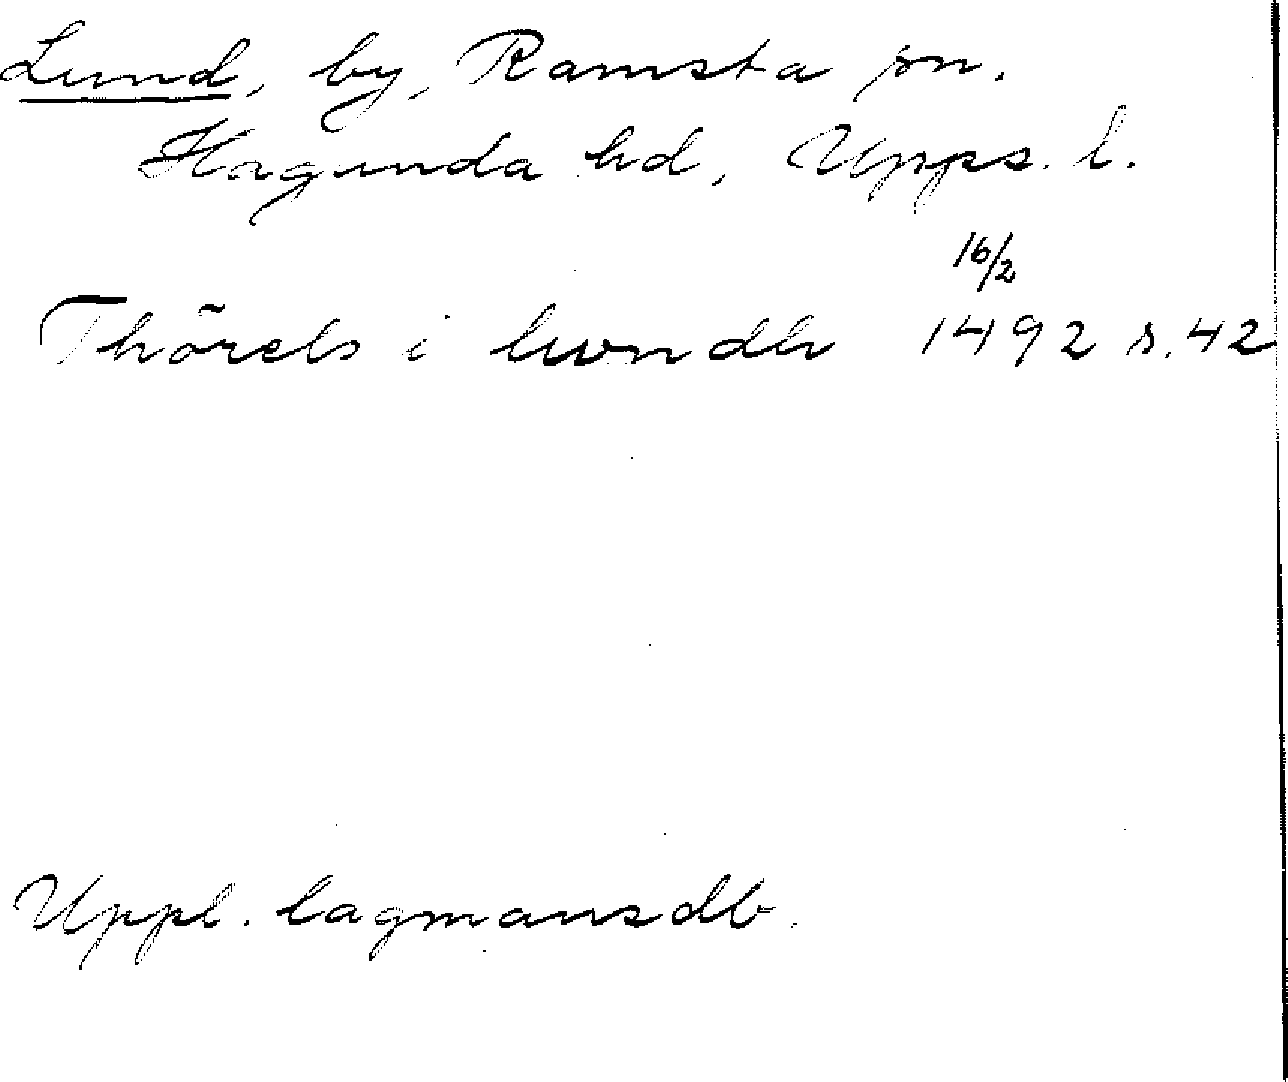 Lund, by, Ramsta sn.
Hagunda hd, Upps. l.
16/2
Thõrels i lwndh 1492 s. 42
Uppl. lagmansdb.